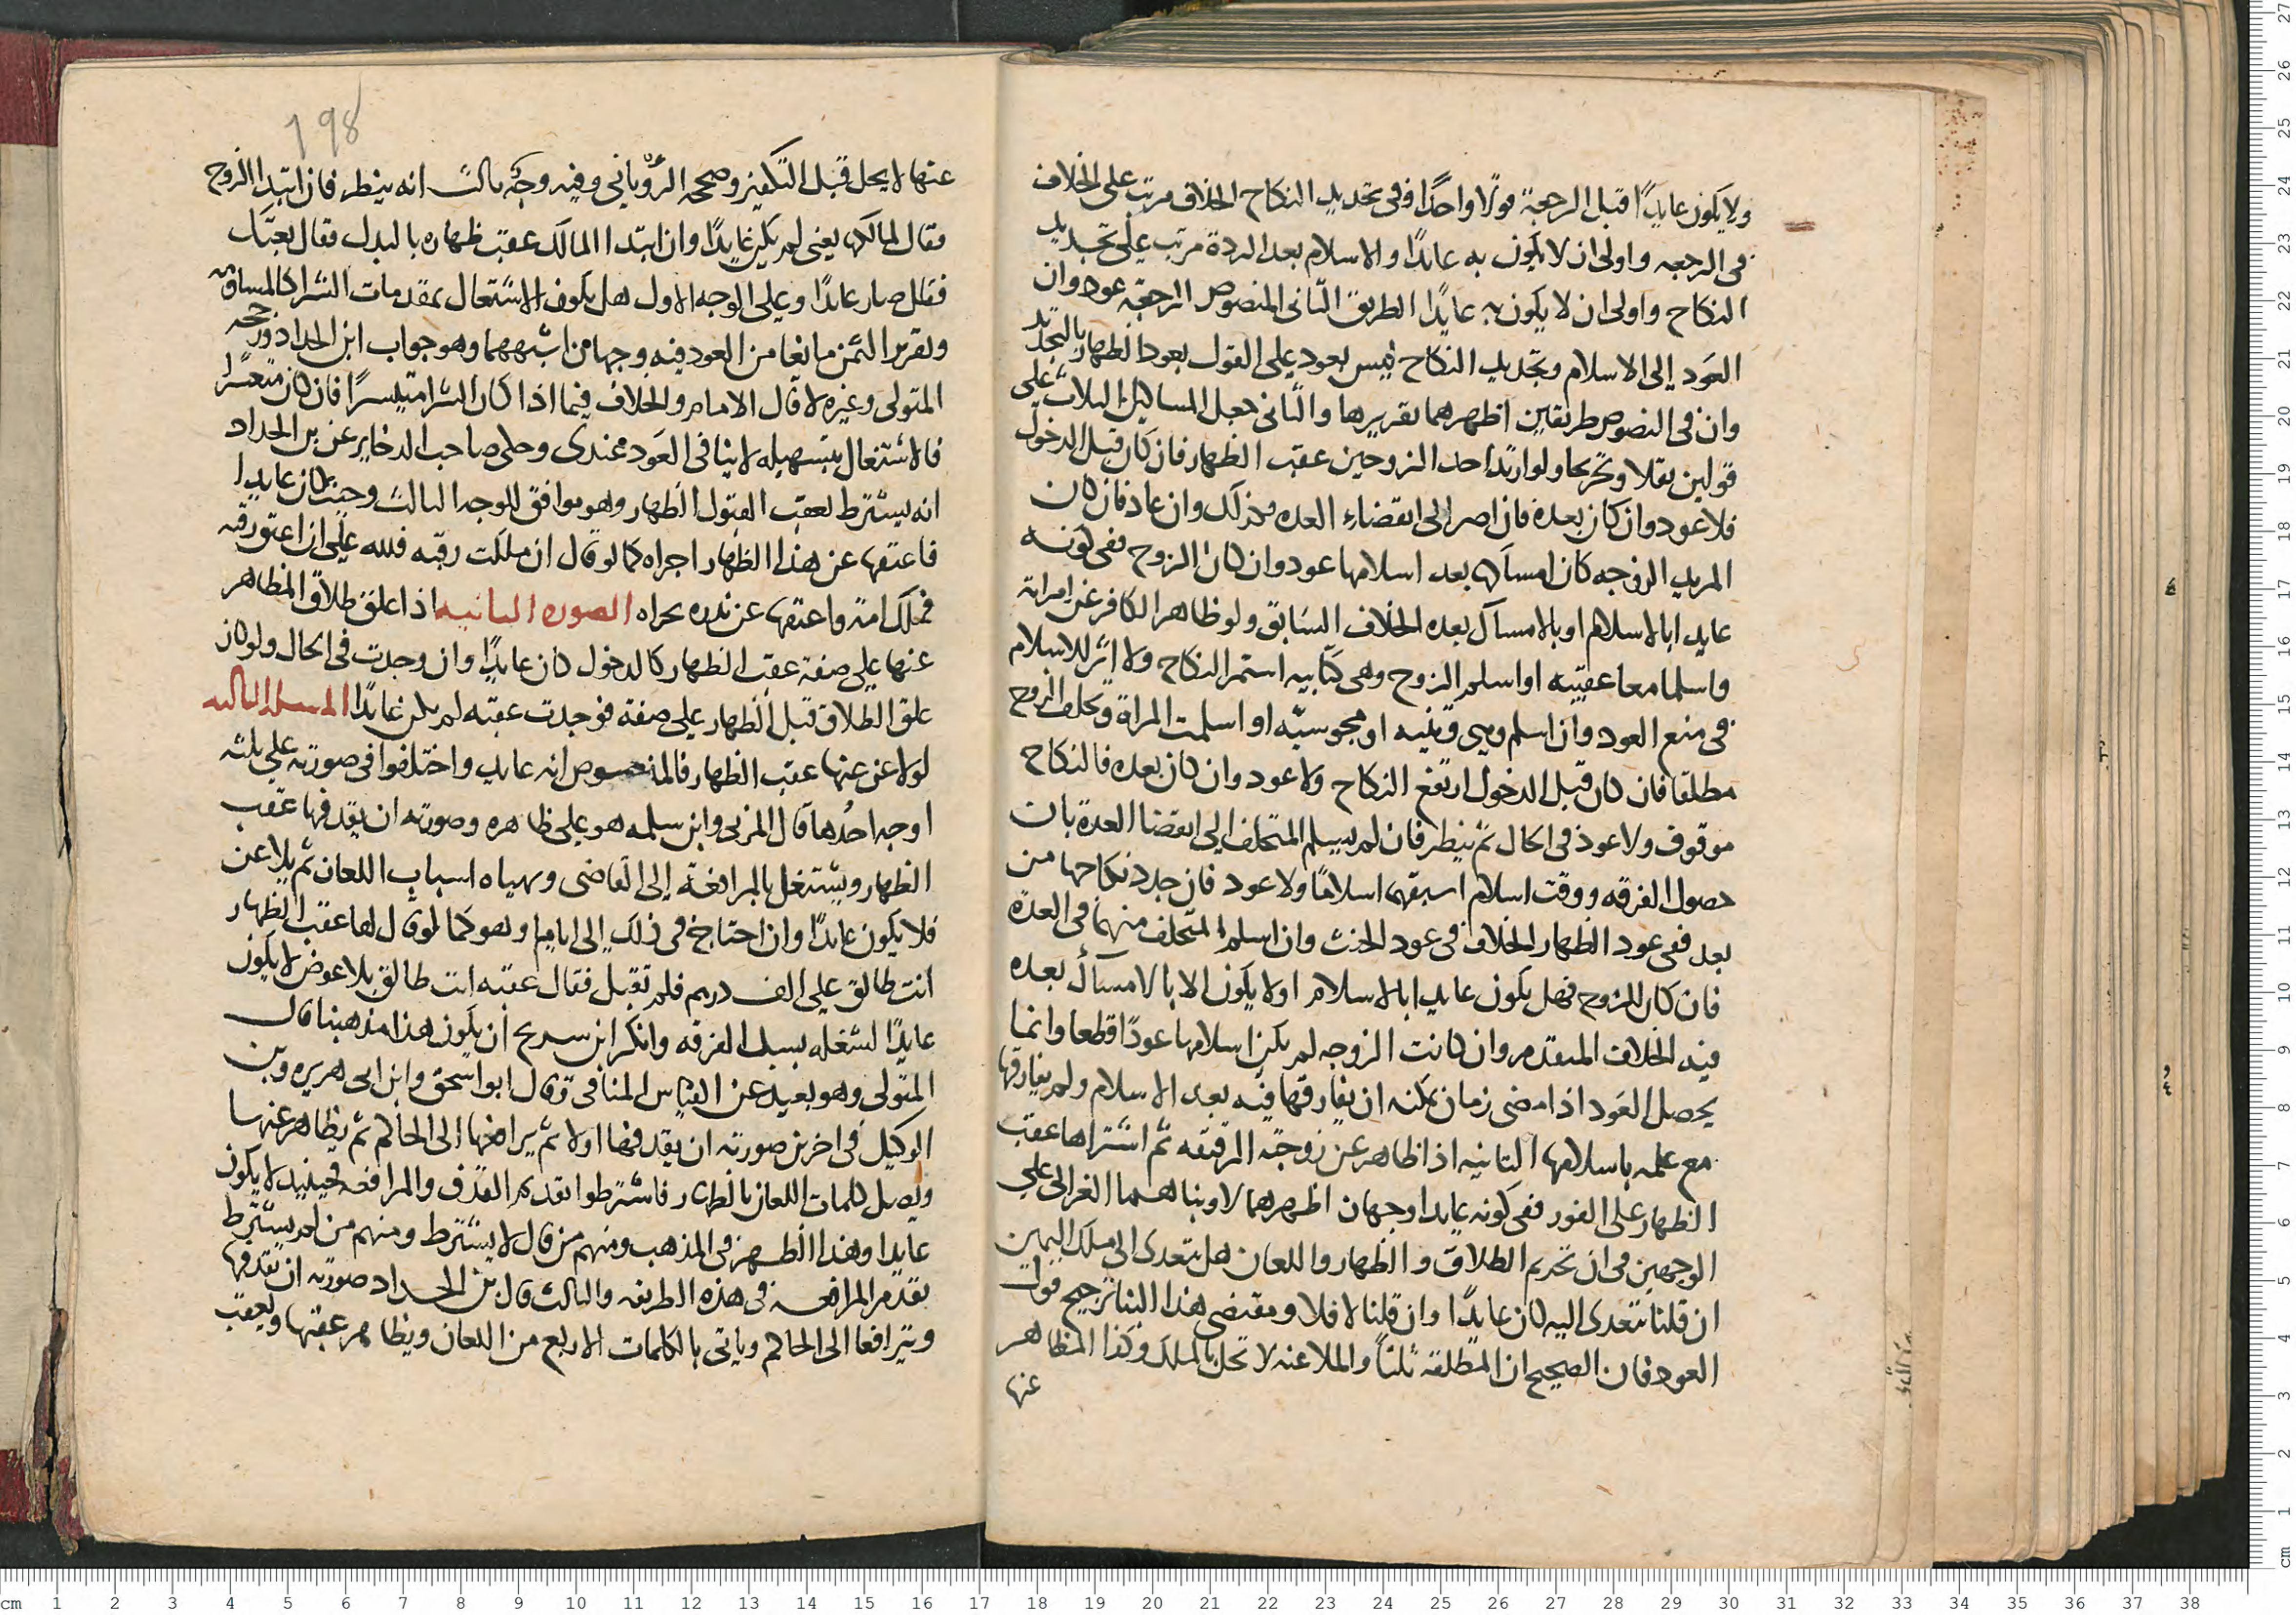 ولا يكون عايدًا قبل الرجعة قولا واحدًا وفى تجديد النكاح الخلاف مرتب على الخلاف
فى الرجعه واولى ان لا يكون به عايدًا والاسلام بعد الردة مرتب على تجديد
النكاح واولى ان لا يكون به عايدًا الطريق الثانى المنصوص الرجعة عود وان
العود إلى الاسلام وتجديد النكاح ليس بعود على القول بعود الظهار بالتجديد
وان فى النصوص طريقين اظهرهما تقريرها والثانى جعل المسايل الثلاث على
قولين نقلا وتخريجا ولو ارتد احد الزوجين عقب الظهار فان كان قبل الدخول
فلا عود وان كان بعده فان اصر الى انقضاء العده فكذلك وان عاد فان كان
المرتد الزوجه كان امساكها بعد اسلامها عود وان كان الزوج ففى كونه
عايدا بالاسلام او بالامساك بعده الخلاف السابق ولو ظاهر الكافر عن امراته
واسلما معا عقيبه او اسلم الزوج وهى كتابيه استمر النكاح ولا اثر للاسلام
فى منع العود وان اسلم وهى وثنيه او مجوسيه او اسلمت المراة وتخلف الزوج
مطلقا فان كان قبل الدخول ارتفع النكاح ولا عود وان كان بعده فالنكاح
موقوف ولا عود فى الحال ثم ينظر فان لم يسلم المتخلف الى انقضا العدة بان
حصول الفرقه ووقت اسلام اسبقهما اسلامًا ولا عود فان جدد نكاحها من
بعد ففى عود الظهار الخلاف فى عود الحنث وان اسلم المتخلف منهما فى العدة
فان كان الزوج فهل يكون عايدا بالاسلام او لا يكون الا بالامساك بعده
فيه الخلاف المتقدم وان كانت الزوجه لم يكن اسلامها عودًا قطعا وانما
يحصل العود اذا مضى زمان يمكنه ان يفارقها فيه بعد الاسلام ولم يفارقها
مع علمه باسلامها الثانيه اذا ظاهر عن زوجته الرقيقه ثم اشتراها عقب
الظهار على الفور ففى كونه عايدا وجهان اظهرهما لا وبناهما الغزالى على
الوجهين فى ان تحريم الطلاق والظهار واللعان هل يتعدى الى ملك اليمين
ان قلنا تتعدى اليه كان عايدًا وان قلنا لا فلا ومقتضى هذا البنا ترجيح قول
العود فان الصحيح ان المطلقة ثلثا والملاعنه لا تحل بالملك وكذا المظاهر
عنها
198
عنها لا يحل قبل التكفير وصححه الرويانى وفيه وجه ثالث انه ينظر فان ابتدا الزوج
فقال لمالكها يعنى لم يكن عايدًا وان ابتدا المالك عقب ظهاره بالبدل فقال بعتك
فقال صار عايدًا وعلى الوجه الاول هل يكون الاشتغال بمقدمات الشرا كالمساومه
وتقرير الثمن مانعا من العود فيه وجهان اشبههما وهو جواب ابن الحداد ورجحه
المتولى وغيره لا قال الامام والخلاف فيما اذا كان الشرا متيسرًا فان كان متعسرا
فالاشتغال بتسهيله لا ينافى العود عندى وحكى صاحب الدخاير عن بن الحداد
انه يشترط لعقب القبول الظهار وهو موافق للوجه الثالث وحيث كان عايدا
فاعتقها عن هذا الظهار اجراه كما لو قال ان ملكت رقبه فلله على ان اعتق رقبه
فملك امة واعتقها عن نذره يجراه الصوره الثانيه اذا علق طلاق المظاهر
عنها على صفة عقب الظهار كالدخول كان عايدًا وان وجدت فى الحال ولو كان
علق الطلاق قبل الظهار على صفة فوجدت عقبه لم يكن عايدًا المسله الثالثه
لو لاعن عنها عقب الظهار فالمنصوص انه عايد واختلفوا فى صورته على ثلثه
اوجه احدها قال المزنى وابن سلمه هو على ظاهره وصورته ان يقذفها عقب
الظهار ويشتغل بالمرافعة إلى القاضى وتهياه اسباب اللعان ثم يلاعن
فلا يكون عايدًا وان احتاج فى ذلك الى ايام وهو كما لو قال لها عقب الظهار
انت طالق على الف درهم فلم تقبل فقال عقبه انت طالق بلا عوض لا يكون
عايدًا لشغله بسبب الفرقه وانكر ابن سريج ان يكون هذا مذهبنا قال
المتولى وهو بعيد عن القياس المنافى وقال ابو اسحق وابن ابى هريره وبن
الوكيل فى اخرين صورته ان يقذفها اولا ثم يرافعها الى الحاكم ثم يظاهر عنها
ويصل كلمات اللعان بالظهار فاشترطوا تقديم القذف والمرافعه فحينيذ لا يكون
عايدا وهذا اظهر فى المذهب ومنهم من قال لا يشترط ومنهم من لم يشترط
تقدم المرافعه فى هذه الطريقه والثالث قال بن الحداد صورته ان يقذفها
ويترافعا الى الحاكم وياتى بالكلمات الاربع من اللعان ويظاهر عقبها ويعقب